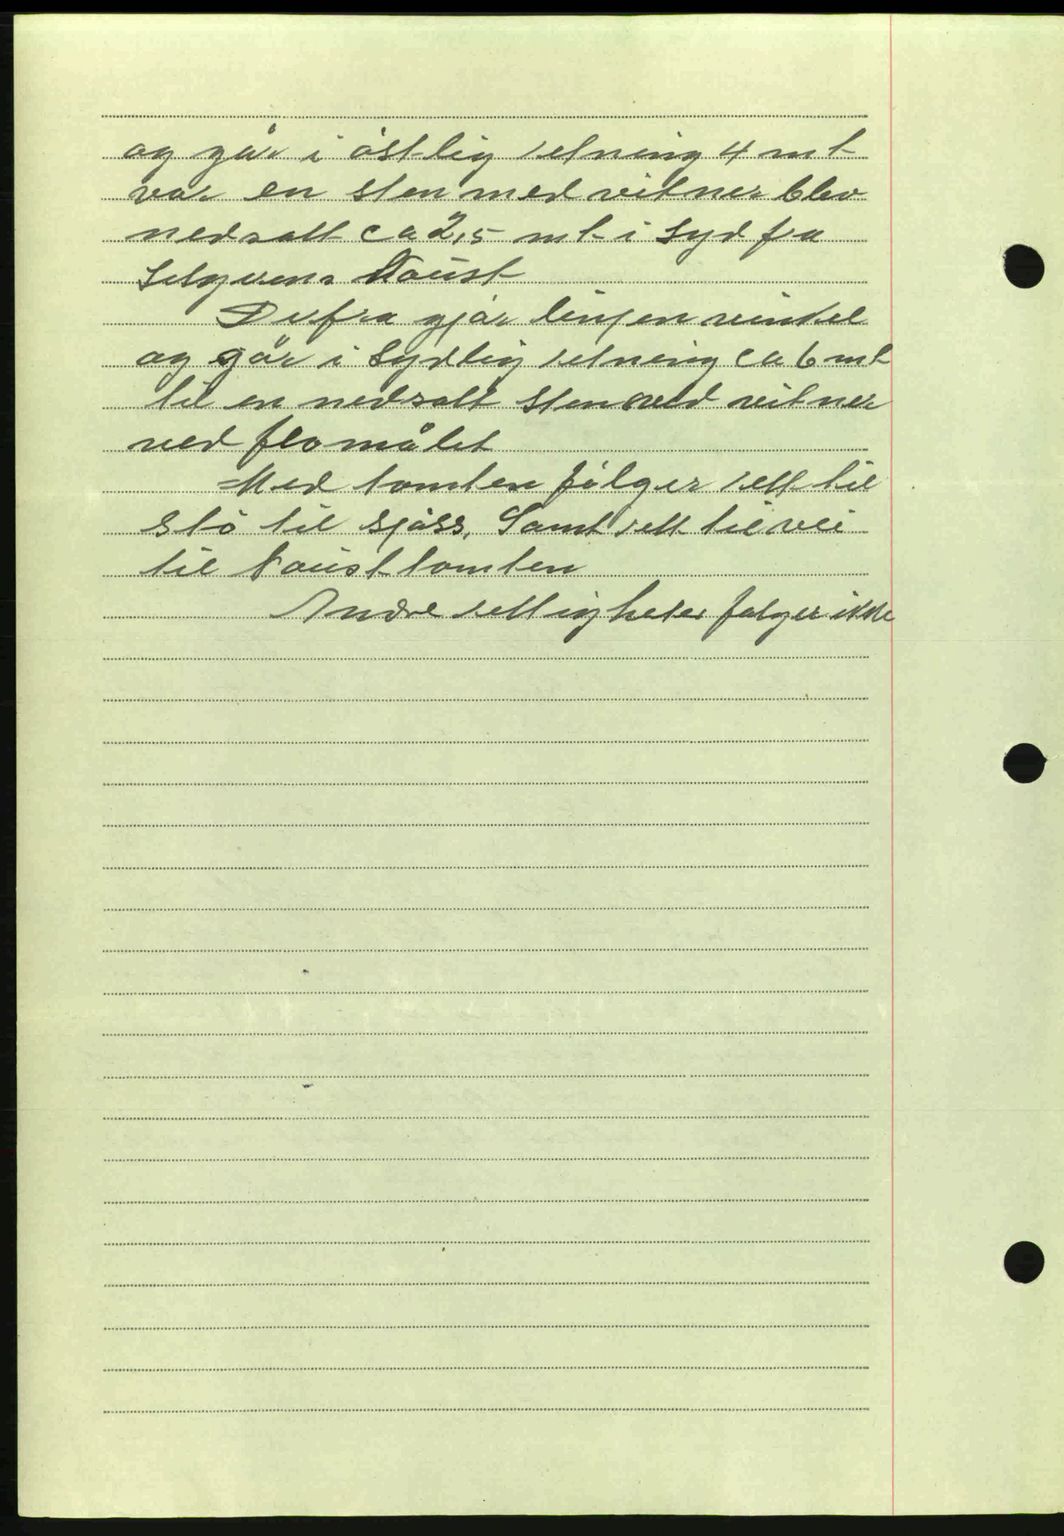 og går i östlig retning 4 mt
var en sten med vitner blev
nedsatt ca 2,5 mt i Syd fra
Selgerens Naust
Derfra gjör linjen vinkel
og går i Sydlig retning ca 6 mt
til en nedsatt sten med vitner
ved flomålet
Med tomten fölger rett til
stö til sjöss, Samt rett til vei
til Nausttomten
Andre rettigheter fölger ikke